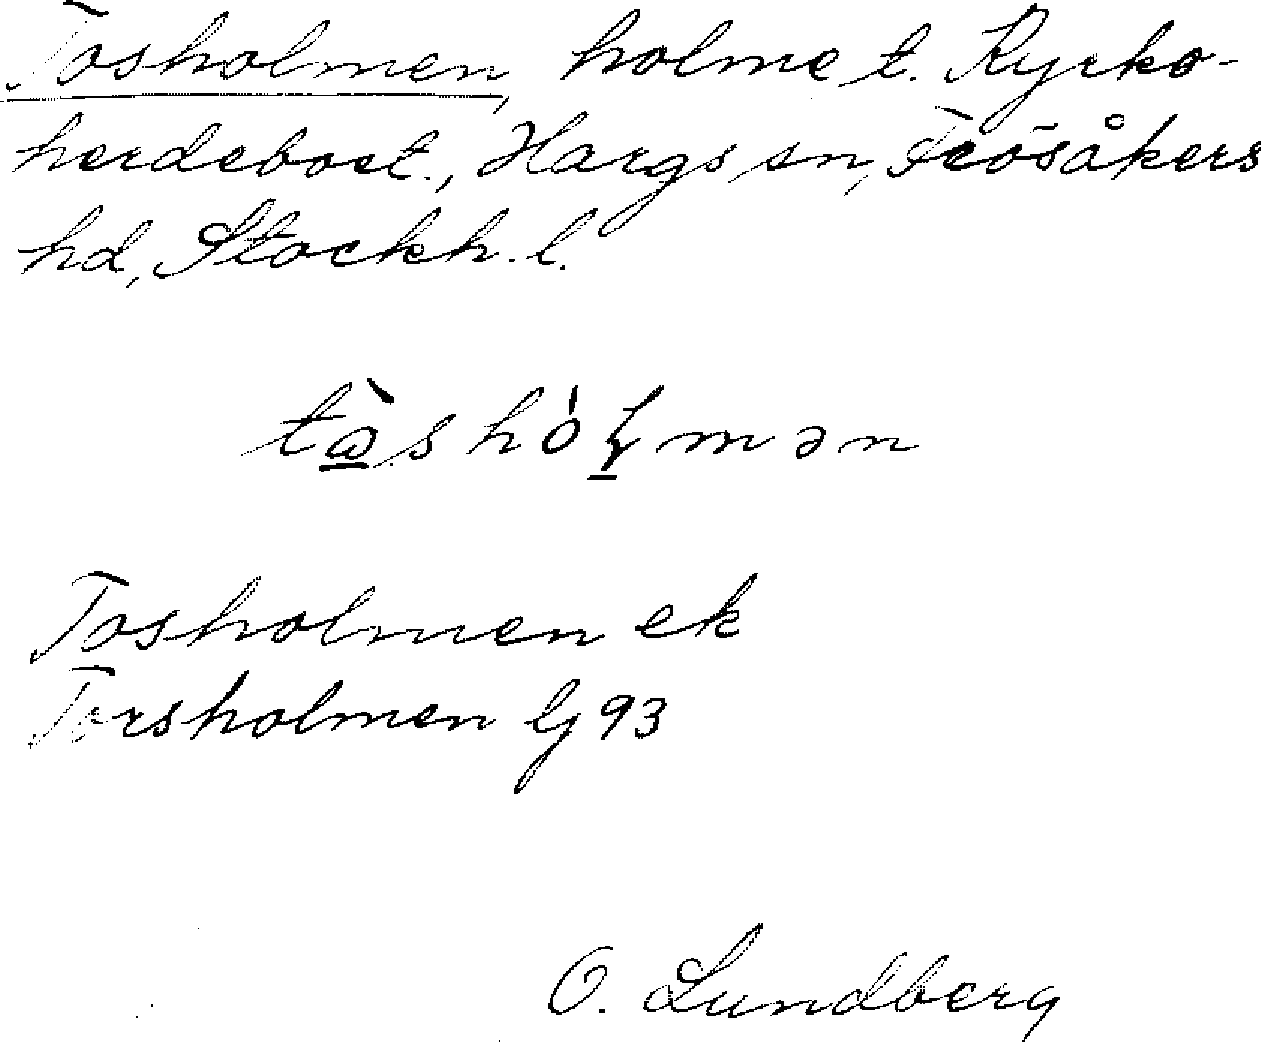 Tosholmen, holme t. Kyrko-
herdebost., Hargs sn, Frösåkers
hd, Stockh. l.
Tosholmen ek
Torsholmen lj 93
O. Lundberg